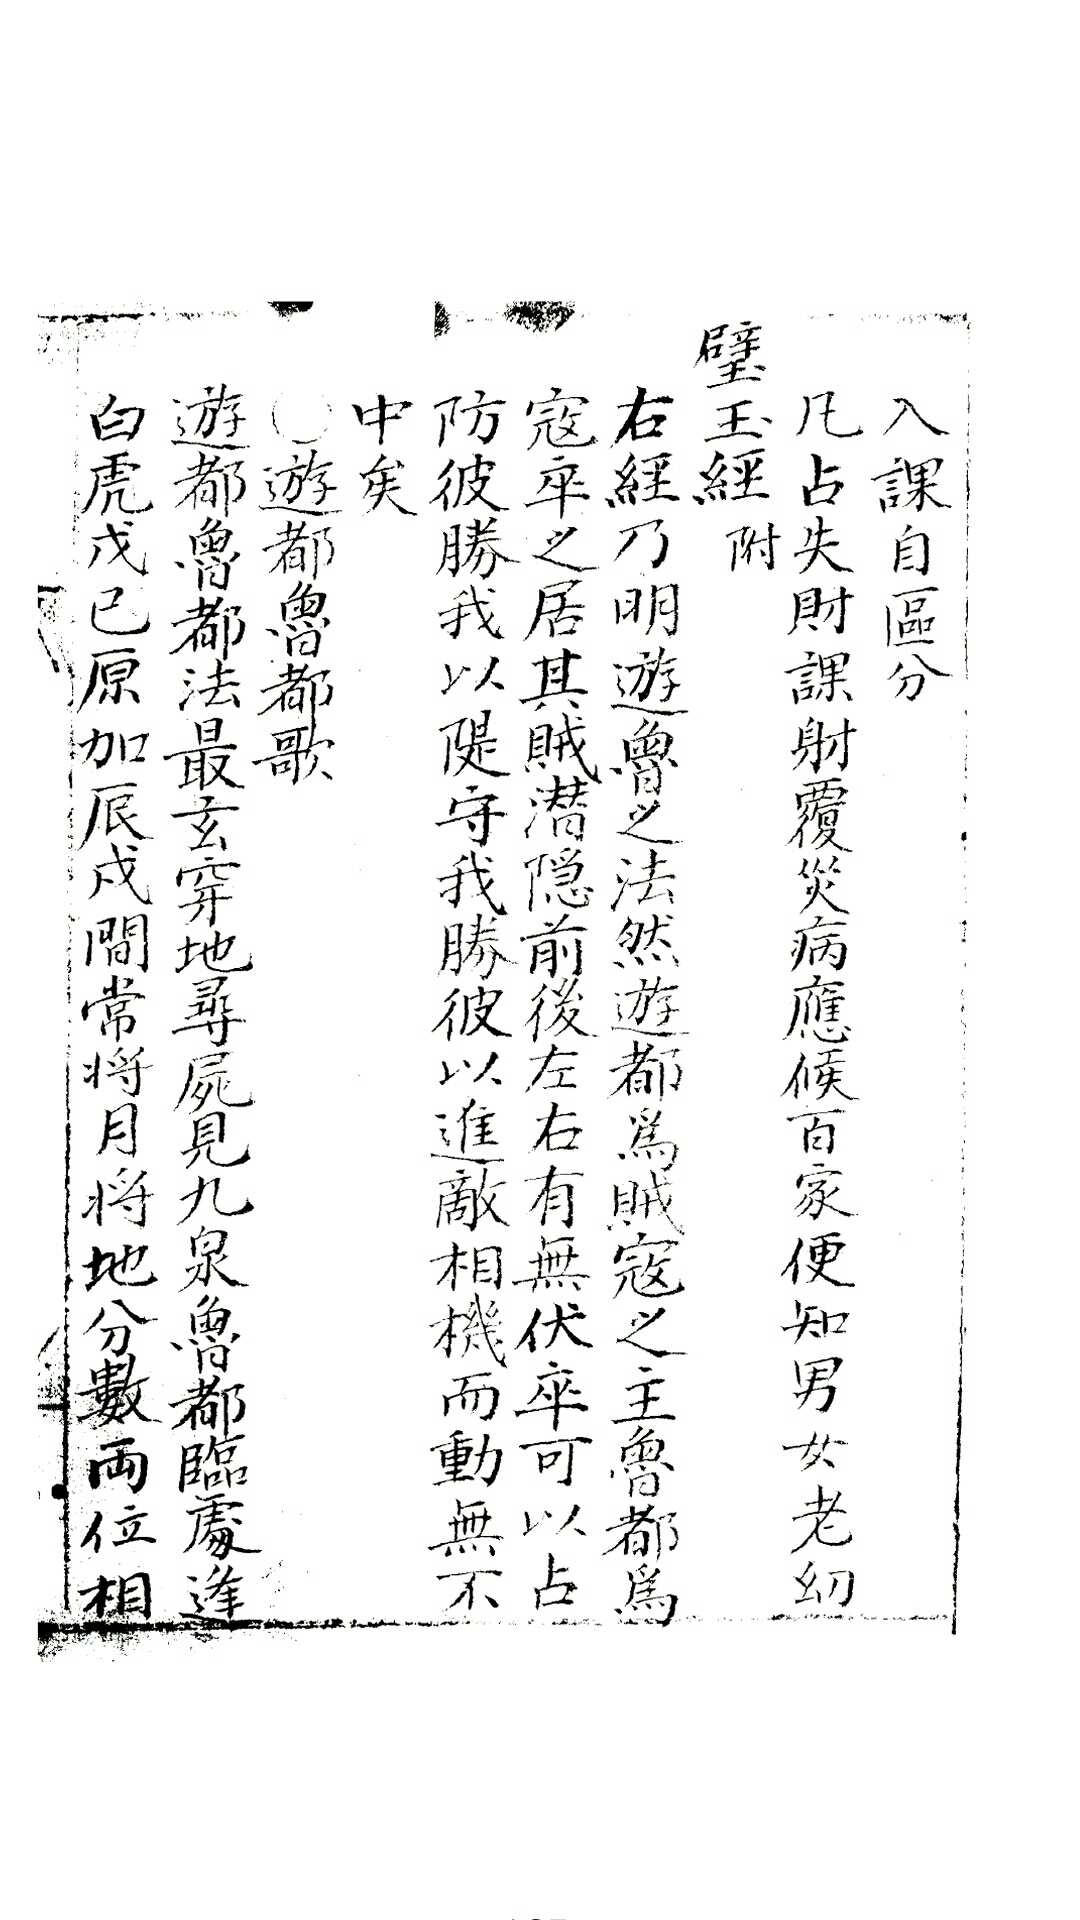 入課自區分
凡占失財課射覆災病應候百家便知男女老幼
璧玉經附
右經乃明遊魯之法然遊都爲賊寇之主魯都爲
寇卒之居其賊潛隠前後左右有無伏卒可以占
防彼勝我以隄守我勝彼以進敵相機而動無不
中矣
〇遊都魯都歌
遊都魯都法最玄穿地尋屍見九泉魯都臨處逢
白虎戊己原加辰戌間常將月將地分數両位相